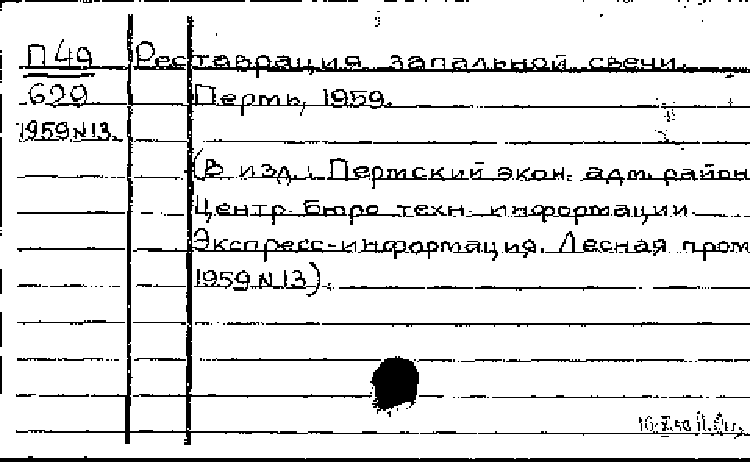 П49 Реставрация запальной свечи.
629 Пермь, 1959.
1959 N 13.
(В изд.: Пермский экон. адм. район
Центр. бюро техн. информации.
Экспресс-информация. Лесная пром
1959 N 13).